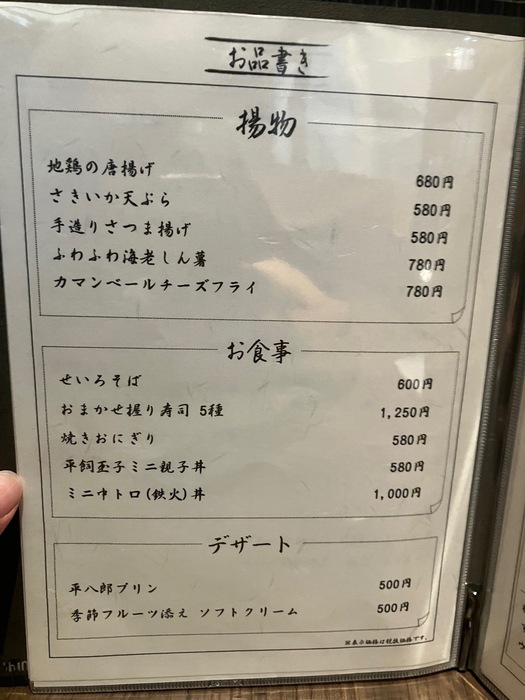 お品書き
揚物
地鶏の唐揚げ 680円
さきいか天ぷら 580円
手造りさつま揚げ 580円
ふわふわ海老しん薯 780円
カマンベールチーズフライ 780円
お食事
せいろそば 600円
おまかせ握り寿司 5種 1,250円
焼きおにぎり 580円
平飼玉子ミニ親子丼 580円
ミニ中トロ(鉄火)丼 1,000円
デザート
平八郎プリン 500円
季節フルーツ添え ソフトクリーム 500円
※表示価格は税抜価格です。